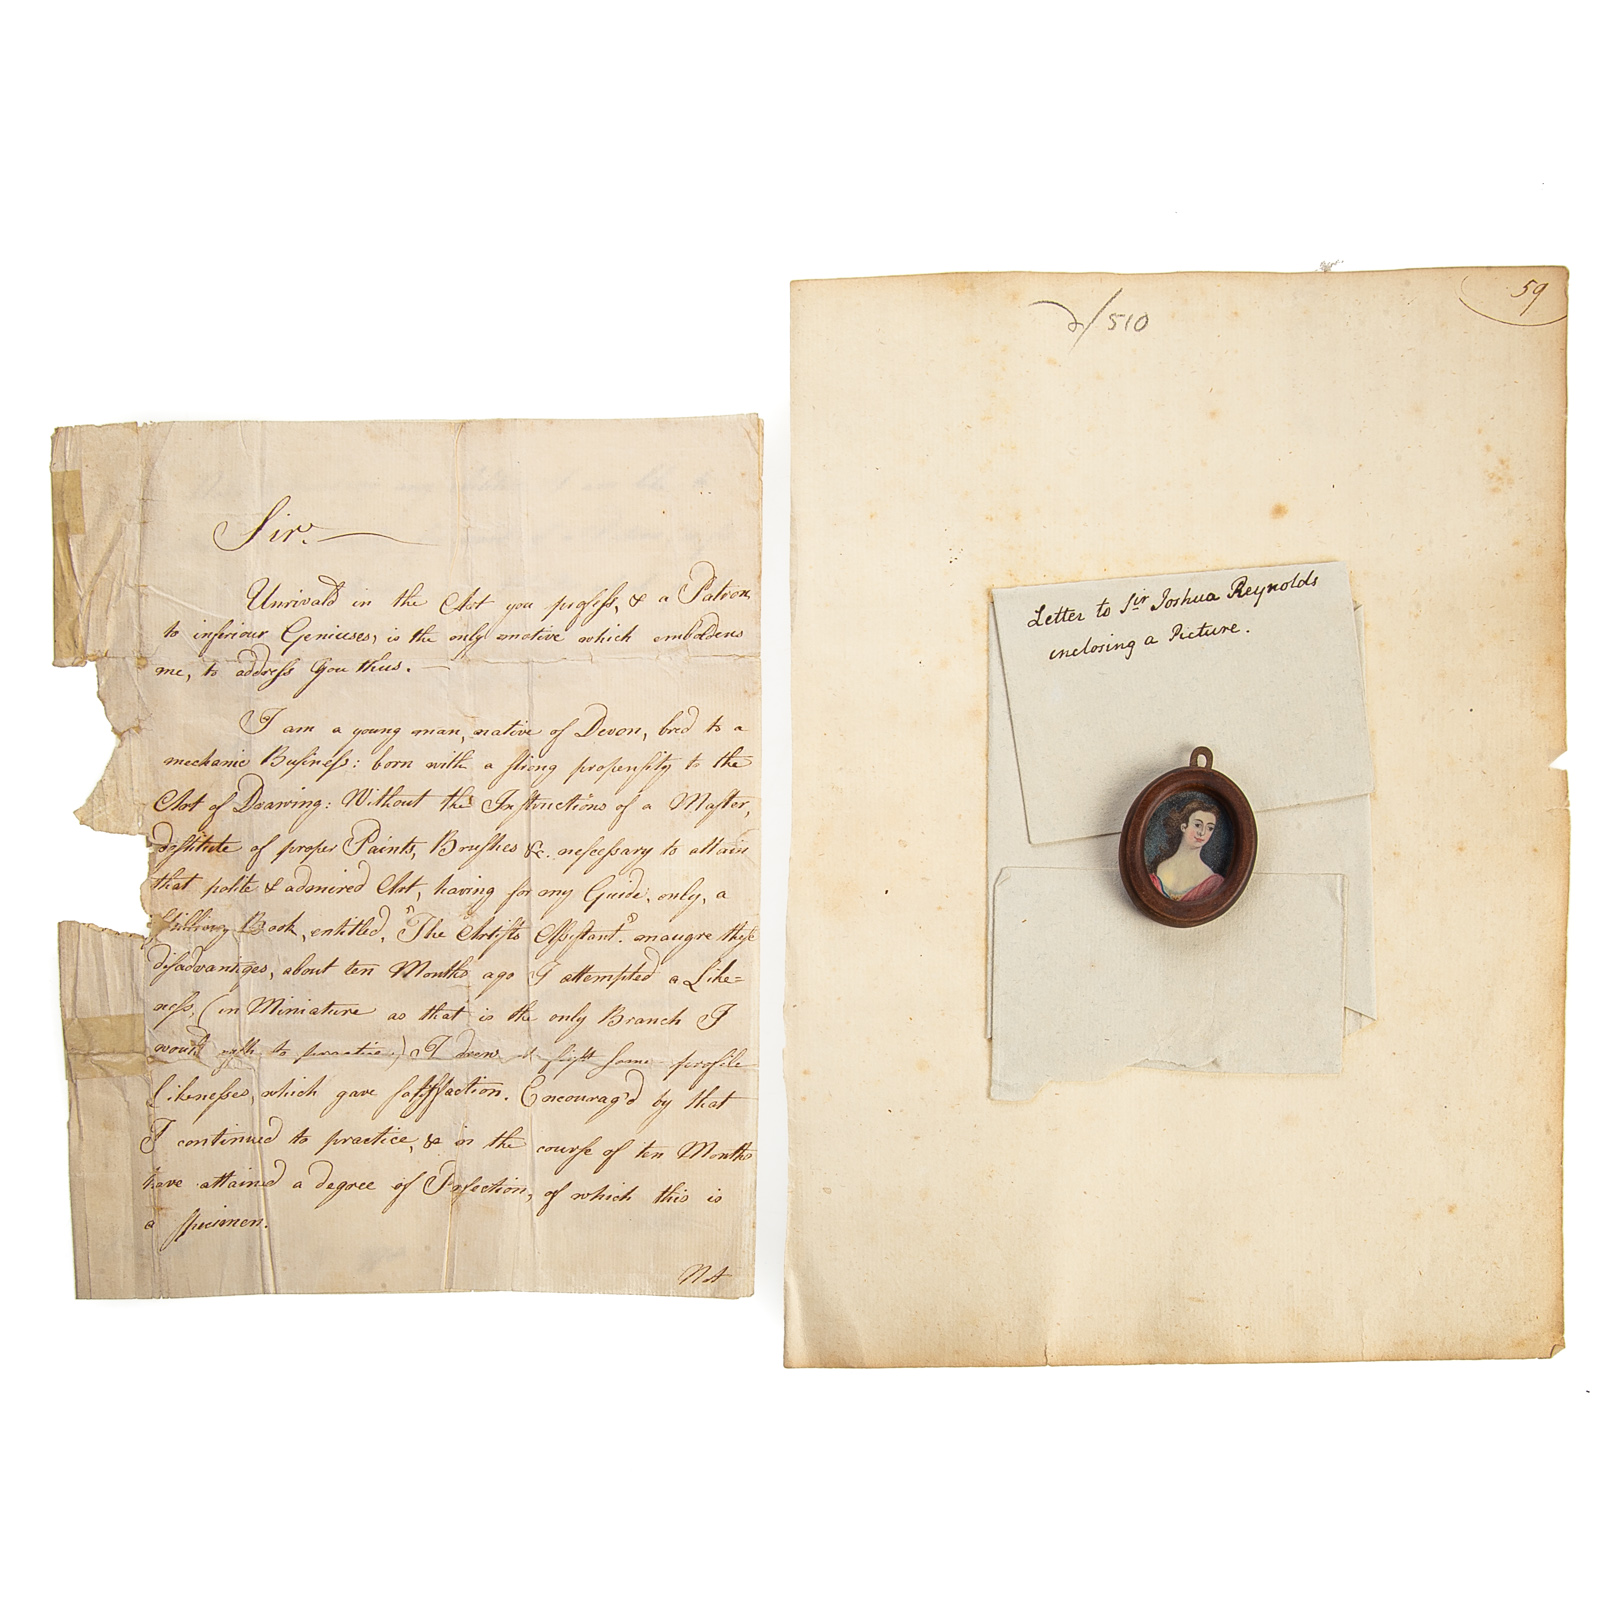 Sir.
Unrival'd in the Art you profess, & a Patron
to inferiour Geniuses, is the only motive which emboldens
me, to address You thus.
I am a young man, native of Devon, bred to a
mechanic Business: born with a strong propensity to the
Art of Drawing: Without the Instructions of a Master,
destitute of proper Paints, Brushes &c. nescessary to attain
that polite & admired Art, having for my Guide, only, a
shilling Book, entitled, "The Artists Assistant". maugre these
disadvantges, about ten Months ago I attempted a Like=
ness, (in Miniature as that is the only Branch I
wou'd wish to practice) I drew at first some profile
likenesses, which gave satisfaction. Encourag'd by that
I continued to practice, & in the course of ten Months
have attained a degree of Perfection, of which this is
a specimen.
Not
2/510
59
Letter to Sir Joshua Reynolds
inclosing a Picture.